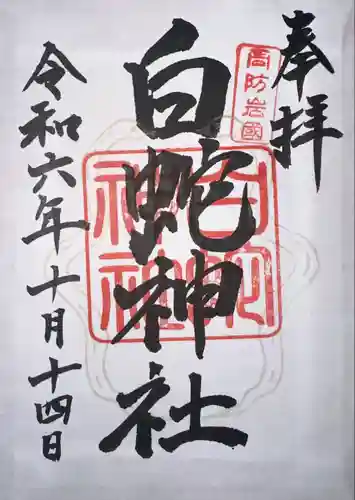 奉拝
周防岩國
白蛇神社
白蛇神社
令和六年十月十四日